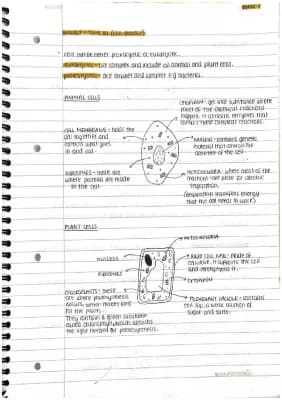 cells can be either prokaryotic or eukaryotic.
eukaryotic - are complex and include all animal and plant cells.
prokaryotic - are smaller and simpler e.g bacteria.
ANIMAL CELLS
CYTOPLASM - gel like substance where
most of the chemical reactions
happen. it contains enzymes that
control these chemical reactions.
CELL MEMBRANE - holds the
cell together and
controls what goes
in and out.
NUCLEUS - contains genetic
material that controls the
activities of the cell
RIBOSOMES - these are
where proteins are made
in the cell.
MITOCHONDRIA - where most of the
reactions take place for aerobic
respiration.
(respiration transfers energy
that the cell needs to work)
PLANT CELLS
MITOCHONDRIA
NUCLEUS
A RIGID CELL WALL - made of
cellulose. it supports the cell
and strengthens it.
RIBOSOMES
CYTOPLASM
CHLOROPLASTS - these
are where photosynthesis
occurs, which makes food
for the plant.
They contain a green substance
called chlorophyll which absorbs
the light needed for photosynthesis.
PERMANENT VACUOLE - contains
cell sap, a weak solution of
sugar and salts.